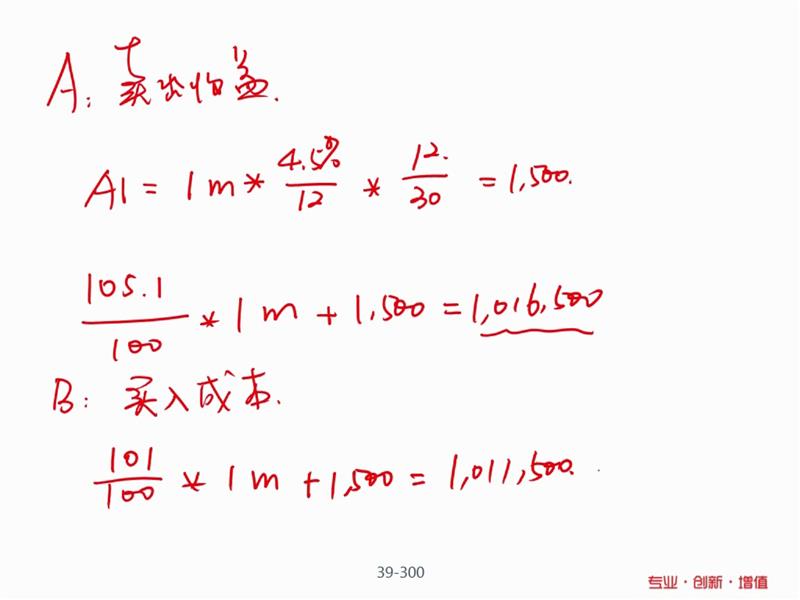 A: 卖出收益.
A1 = 1m * 4.5%/12 * 12/30 = 1,500.
105.1/100 * 1m + 1,500 = 1,016,500
B: 买入成本.
101/100 * 1m + 1,500 = 1,011,500.
39-300
专业·创新·增值